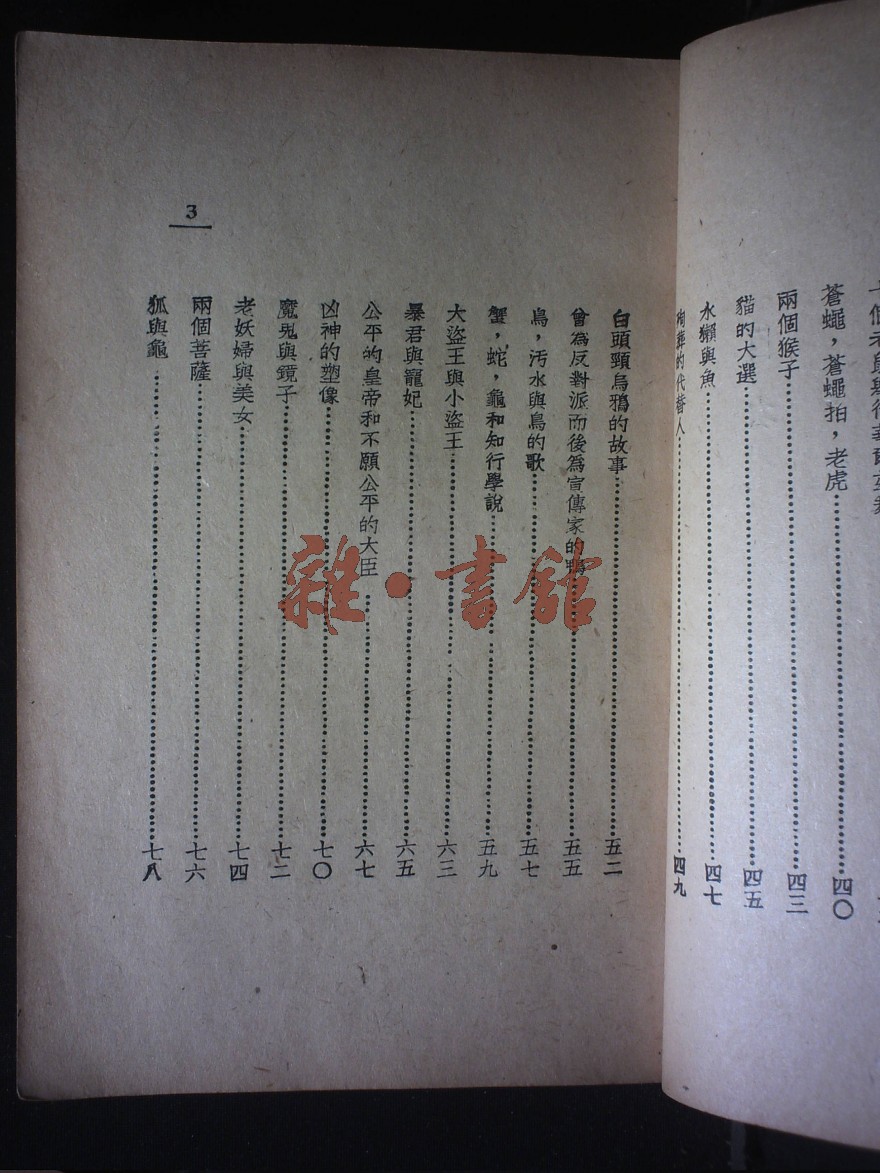 蒼蠅，蒼蠅拍，老虎……四〇
兩個猴子……四三
貓的大選……四五
水獺與魚……四七
殉葬的代替人……四九
3
白頭頸烏鴉的故事……五二
曾為反對派而後為宣傳家的鴨……五五
鳥，汚水與鳥的歌……五七
蟹，蛇，龜和知行學說……五九
大盜王與小盜王……六三
暴君與寵妃……六五
公平的皇帝和不願公平的大臣……六七
凶神的塑像……七〇
魔鬼與鏡子……七二
老妖婦與美女……七四
兩個菩薩……七六
狐與龜……七八
雜·書館